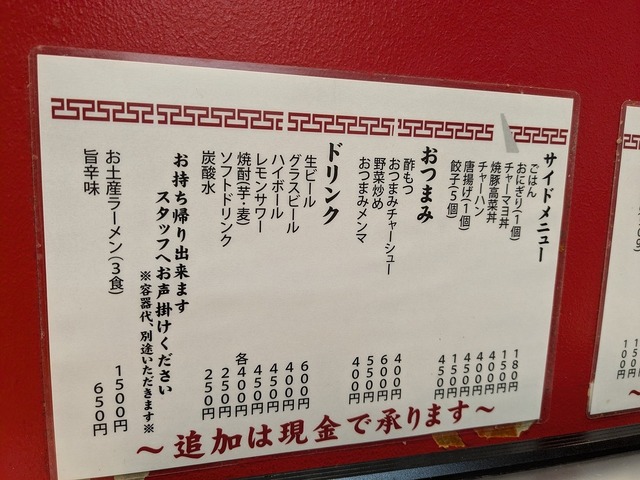 サイドメニュー
ごはん 180円
おにぎり(1個) 150円
チャーマヨ丼 400円
焼豚高菜丼 400円
チャーハン 450円
唐揚げ(1個) 150円
餃子(5個) 450円
おつまみ
酢もつ 400円
おつまみチャーシュー 600円
野菜炒め 550円
おつまみメンマ 400円
ドリンク
生ビール 600円
グラスビール 400円
ハイボール 450円
レモンサワー 450円
焼酎(芋・麦) 各400円
ソフトドリンク 250円
炭酸水 250円
お持ち帰り出来ます
スタッフへお声掛けください
※容器代、別途いただきます※
お土産ラーメン(3食) 1500円
旨辛味 650円
～追加は現金で承ります～